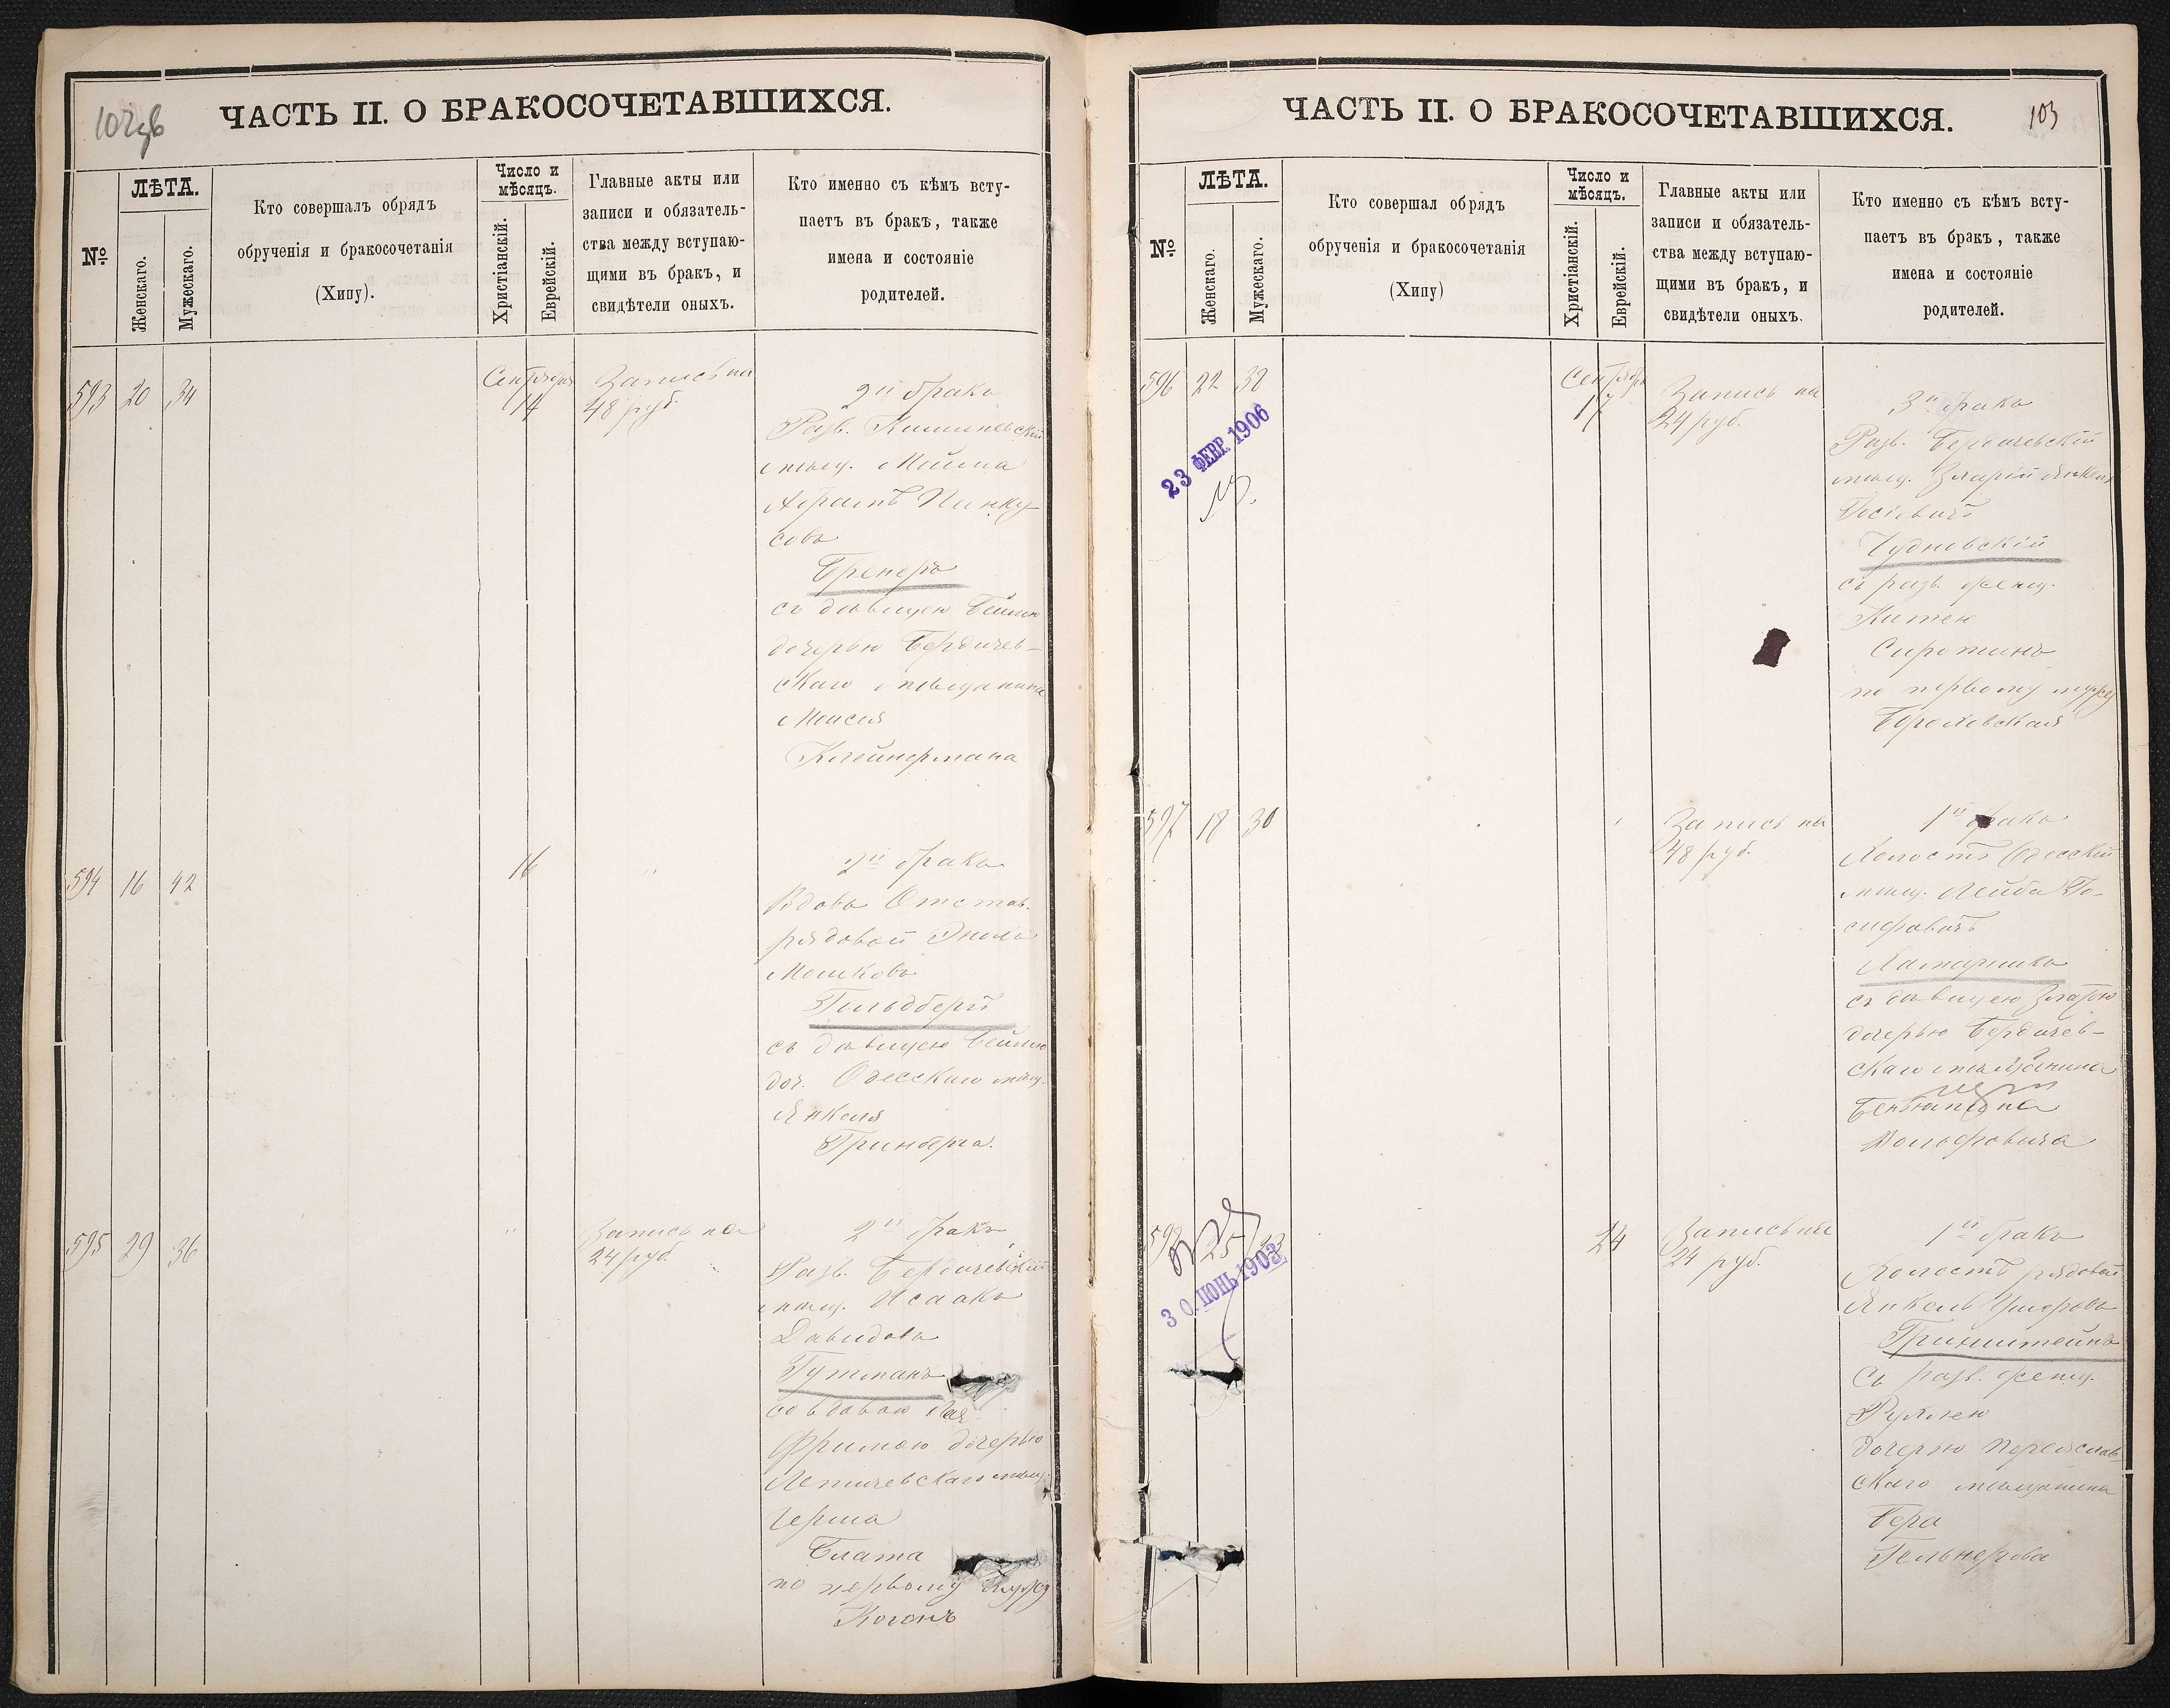 102об
ЧАСТЬ II. О БРАКОСОЧЕТАВШИХСЯ.
№
ЛѢТА.
Женскаго.
Мужескаго.
Кто совершалъ обрядъ
обрученія и бракосочетанія
(Хипу).
Число и
мѣсяцъ.
Христіанскій.
Еврейскій.
Главные акты или
записи и обязатель-
ства между вступаю-
щими въ бракъ, и
свидѣтели оныхъ.
Кто именно съ кѣмъ всту-
паетъ въ бракъ, также
имена и состояніе
родителей.
593 20 34
Сентября
14
Запись на
48 руб.
2й бракъ
Разв. Кишиневскій
мѣщ. Мойша
Абрамъ Пинку-
совъ
Бренеръ
съ дѣвицею Бейлею
дочерью Бердичев-
скаго мѣщанина
Моисея
Клейнермана
594 16 42
16
"
2й бракъ
Вдовъ Отстав.
рядовой
Мошковъ
Гольдбергъ
съ дѣвицею Бейлею
доч. Одесскаго мѣщ.
Янкеля
Гринберга.
595 29 36
"
Запись на
24 руб.
2й бракъ
Разв. Бердичевскій
мѣщ. Исаакъ
Давидовъ
Гутманъ
со вдовою Лея
Фримою дочерью
Летичевскаго мѣщ.
Герша
Блата
по первому мужу
Коганъ
103
ЧАСТЬ II. О БРАКОСОЧЕТАВШИХСЯ.
№
ЛѢТА.
Женскаго.
Мужескаго.
Кто совершал обрядъ
обрученія и бракосочетанія
(Хипу)
Число и
мѣсяцъ.
Христіанскій.
Еврейскій.
Главные акты или
записи и обязатель-
ства между вступаю-
щими въ бракъ, и
свидѣтели оныхъ.
Кто именно съ кѣмъ всту-
паетъ въ бракъ, также
имена и состояніе
родителей.
596 22 38
23 ФЕВР. 1906
Сентябрь
17
Запись на
24 руб.
3й бракъ
Разв. Бердичевскій
мѣщ. Янкель
Чудновскій
съ разв. женщ.
Сиротинъ
по первому мужу
597 18 30
Запись на
48 руб.
1й бракъ
Холостъ Одесскій
мѣщ. Лейба Іо-
сифовъ
съ дѣвицею Златою
дочерью Бердичев-
скаго мѣщанина
Беньямина
Вольфовича
598 25 33
30 ІЮНЬ 1903
24
Запись на
24 руб.
1й бракъ
Холостъ рядовой
Янкель
Гринштейнъ
съ разв. женщ.
Рухлею
дочерью Переяслав-
скаго мѣщанина
Бера
Гельнерова